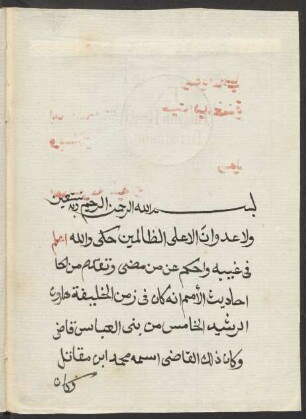 بسم الله الرحمن الرحيم وبه نستعين
ولا عدوان الا على الظالمين حكى والله اعلم
فى غيبه واحكم عن من مضى وتقدم من
احاديث الأمم انه كان فى زمن الخليفة هارون
الرشيد الخامس من بنى العباس قاضى
وكان ذالك القاضى اسمه محمد ابن مقاتل
وكان